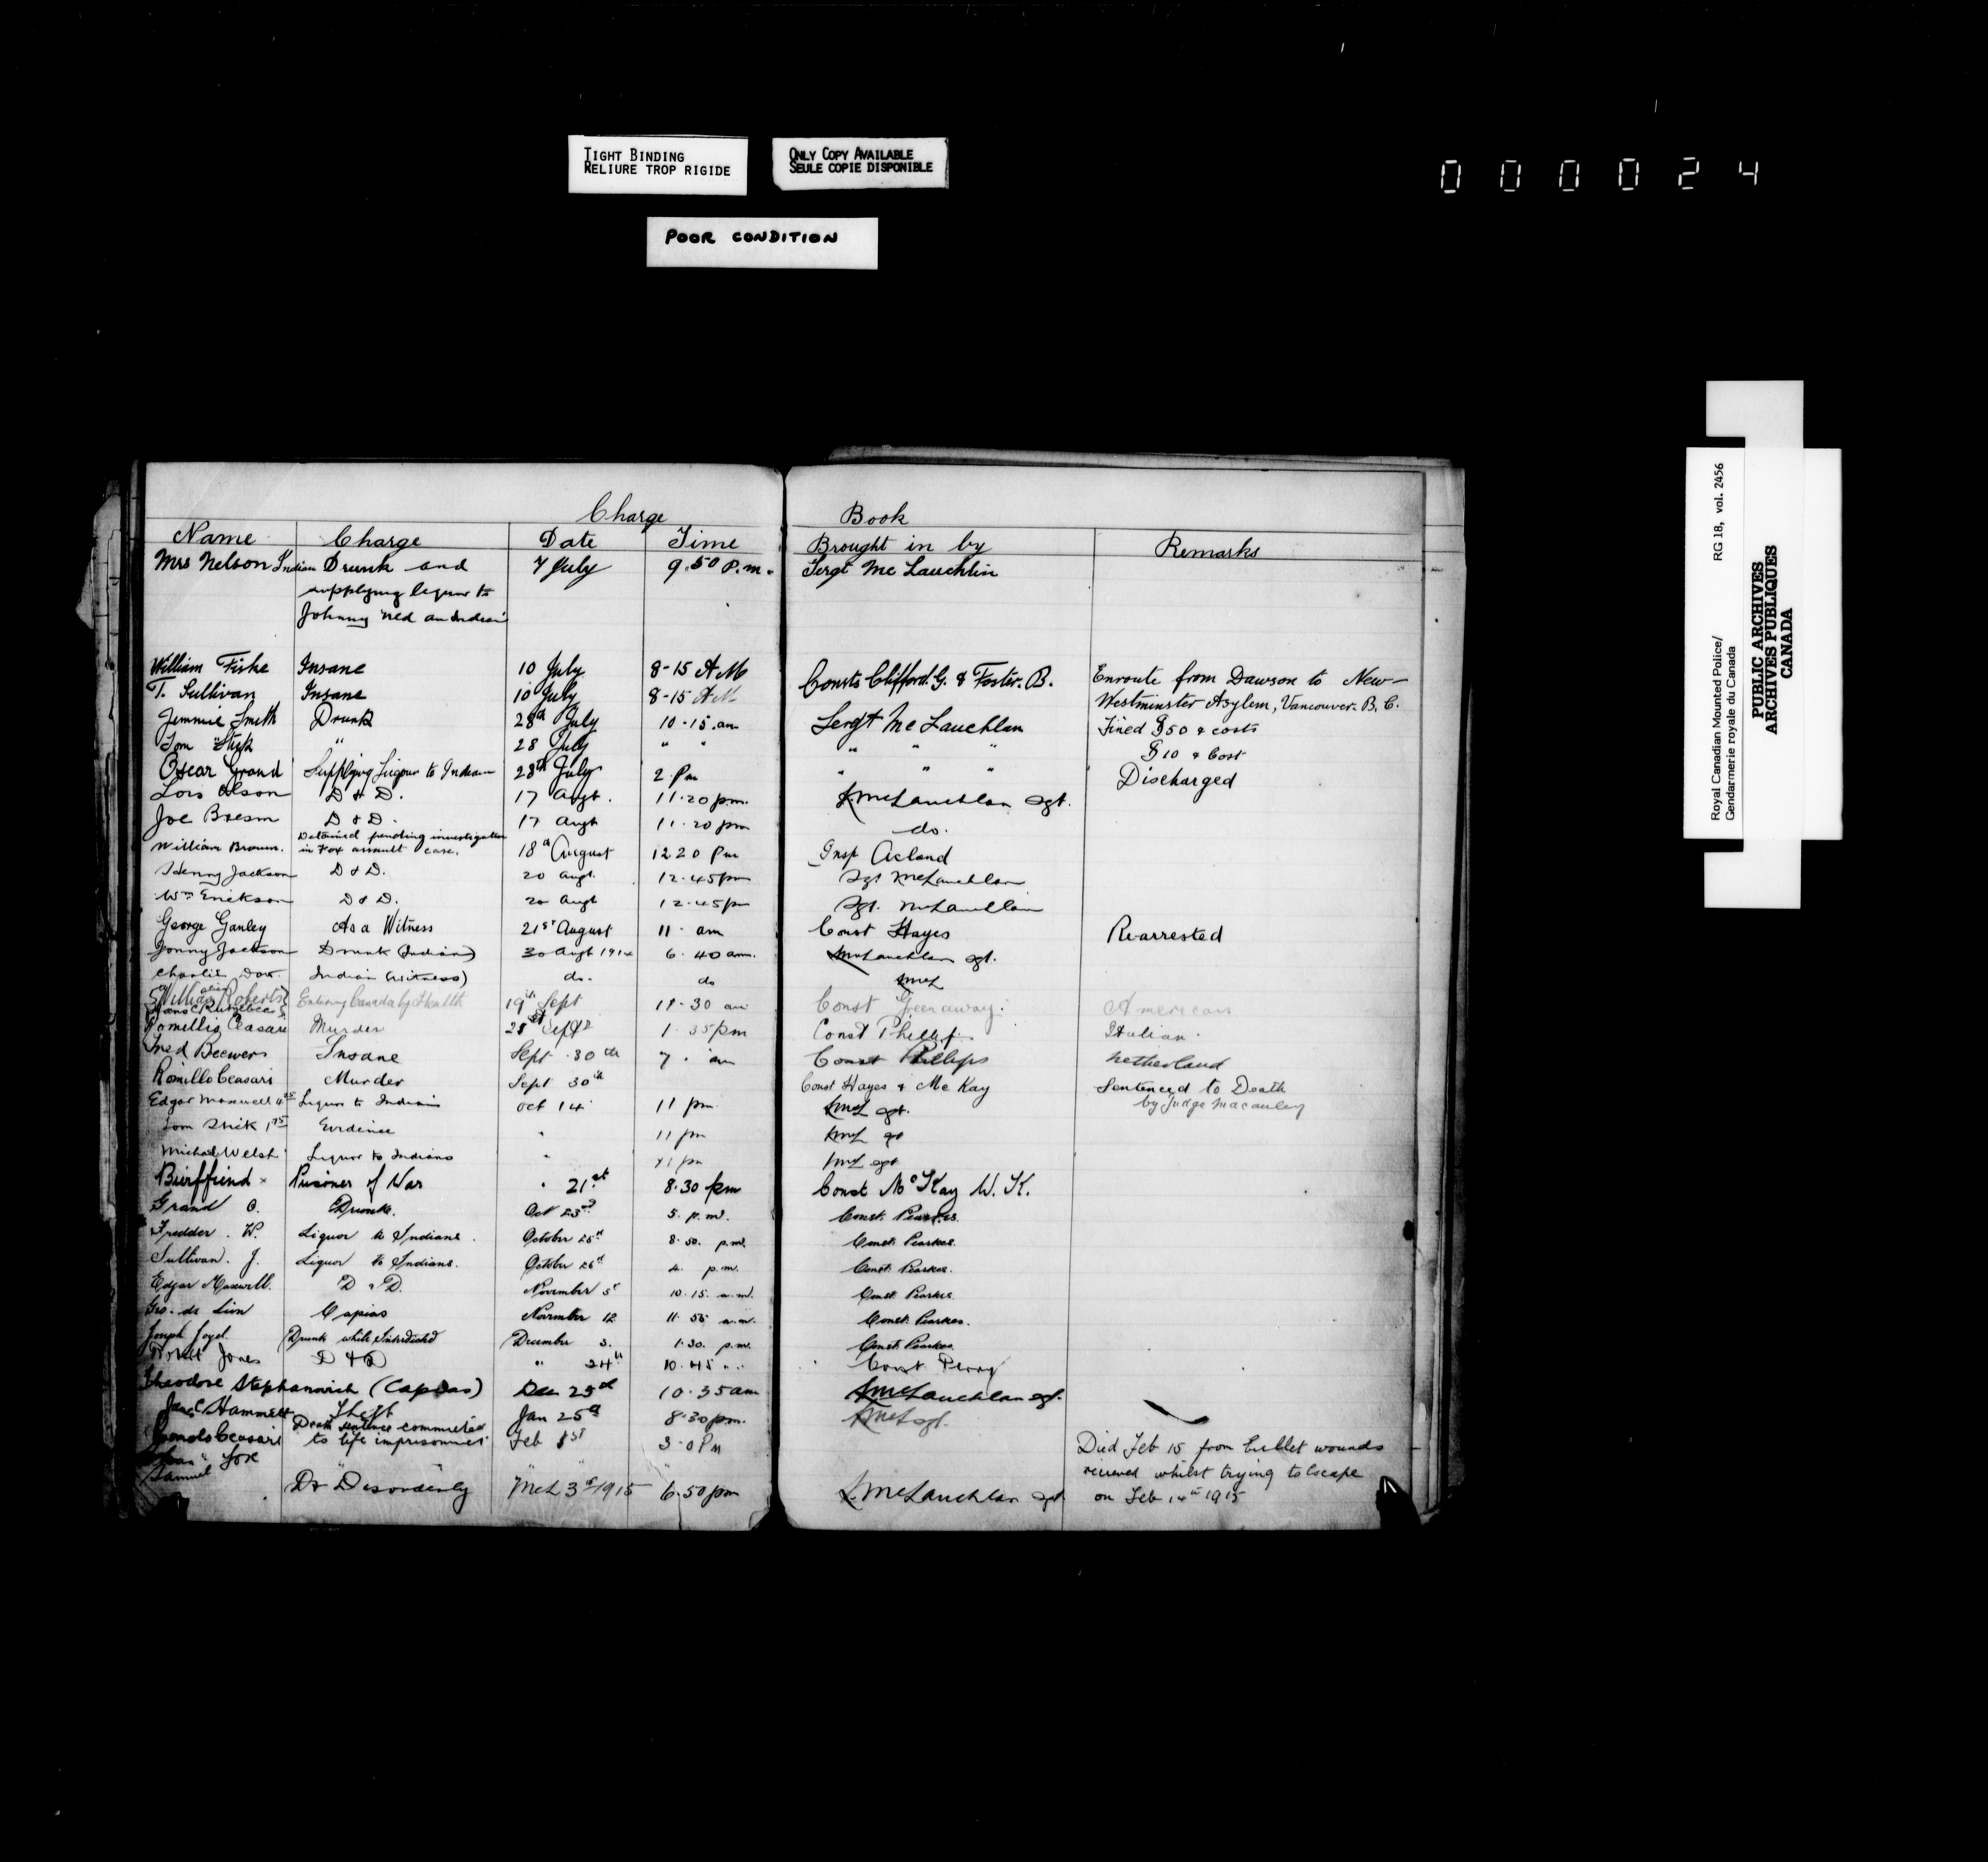 TIGHT BINDING
RELIURE TROP RIGIDE
ONLY COPY AVAILABLE
SEULE COPIE DISPONIBLE
POOR CONDITION
000024
Royal Canadian Mounted Police/ RG 18, vol. 2456
Gendarmerie royale du Canada
PUBLIC ARCHIVES
ARCHIVES PUBLIQUES
CANADA
Charge Book
Name Charge Date Time Brought in by Remarks
Mrs Nelson Indian Drunk and 7 July 9.50 P.m. Sergt McLauchlin
supplying liquor to
Johnny Ned an Indian
William Fiske Insane 10 July 8-15 AM Consts Clifford. G. & Foster. B. Enroute from Dawson to New-
T. Sullivan Insane 10 July 8-15 AM Westminster Asylem, Vancouver. B.C.
Jimmie Smith Drunk 28th July 10-15 am Sergt McLauchlan Fined $50 & costs
Tom Stick " 28 July " " " " " $10 & Cost
Oscar Grand Supplying Liqour to Indian 28th July 2. Pm " " " Discharged
Lois Olson D & D. 17 Augt. 11.20 pm. K McLauchlan Sgt.
Joe D & D. 17 Augt 11.20 pm do.
William Brown. Detained pending investigation
in Fox assault case. 18th August 12 20 Pm Insp Acland
Henny Jackson D & D. 20 augt. 12.45pm Sgt McLauchlan
Wm Erickson D & D. 20 Augt 12.45pm Sgt. McLauchlan
George Ganley As a Witness 21st August 11. am Const Hayes Rearrested
Jonny Jackson Drunk (Indian) 30 Augt 1914 6.40 am. McLauchlan sgt.
Charlie Indian (witness) do. do KMcL
William Roberts alias Entering Canada by Stealth 19th Sept 11.30 am Const Greenaway. American
Hans
Romillio Ceasari Murder 1.35pm Const Phillips Italian.
Beewers Insane Sept. 30th 7. am Const Phillips Netherland
Romillo Ceasari Murder Sept 30th Const Hayes & McKay Sentenced to Death
by Judge Macauley
Edgar Maxwell Liquor to Indians Oct 14 11 pm KMcL sgt.
Tom Stick Evidence " 11 pm KMcL sgt
Michael Welsh Liquor to Indians " 11 pm KMcL sgt
Bierffiend Prisoner of War " 21st 8.30 pm Const McKay W. K.
Grand O. Drunk. Oct 23rd 5. p.m. Const. Pearkes.
Fredder. W. Liquor to Indians. October 25th 8.50. p.m. Const. Pearkes.
Sullivan. J. Liquor to Indians. October 26th 4. p.m. Const. Pearkes.
Edgar Maxwell. D & D. November 5th 10.15. a.m. Const. Pearkes.
Geo. de Lion Capias November 12 11.55 a.m. Const. Pearkes.
Joseph Drunk while Interdicted December 3. 1.30. p.m. Const. Pearkes.
Jones D & D " 24th 10.45 Const. Perry
Theodore Stephanovich (Capias) Dec 25th 10.35 am KMcLauchlan sgt.
Hammett Theft Jan 25th 8.30 pm. KMcL sgt.
Ceasari Death sentence commuted
to life imprisonment Feb 1st 3.0 Pm Died Feb 15 from bullet wounds
Joe recieved whilst trying to Escape
Samuel on Feb 14th 1915
Dr Disorderly Mch 3rd 1915 6.50 pm K McLauchlan sgt.